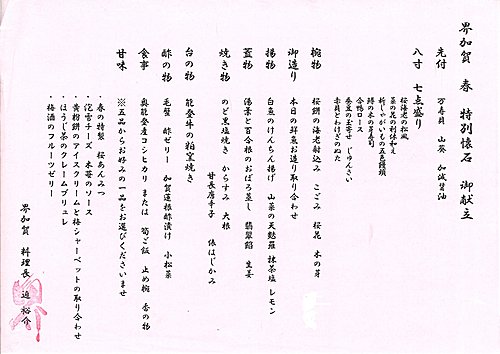 界加賀 春 特別懐石 御献立
先付 万寿貝 山葵 加減醤油
八寸 七点盛り
桜海老の松風
菜の花の利休和え
新じゃがいもの五色饅頭
鱒の木の芽寿司
合鴨ロース
蚕豆の玉寄せ じゅんさい
赤貝とわけぎのぬた
椀物 桜餅の海老射込み こごみ 桜花 木の芽
御造り 本日の鮮魚お造り取り合わせ
揚物 白魚のけんちん揚げ 山菜の天麩羅 抹茶塩 レモン
蓋物 湯葉と百合根のおぼろ蒸し 翡翠餡 生姜
焼き物 のど黒塩焼き からすみ 大根
甘長唐辛子 俵はじかみ
台の物 能登牛の粕宝焼き
酢の物 毛蟹 酢ゼリー 加賀蓮根酢漬け 小松菜
食事 奥能登産コシヒカリ または 筍ご飯 止め椀 香の物
甘味 ※五品からお好みの一品をお選びくださいませ
・春の特製 桜あんみつ
・泡雪チーズ 木苺のソース
・黄粉餅のアイスクリームと梅シャーベットの取り合わせ
・ほうじ茶のクレームブリュレ
・梅酒のフルーツゼリー
界加賀 料理長 迫 裕介